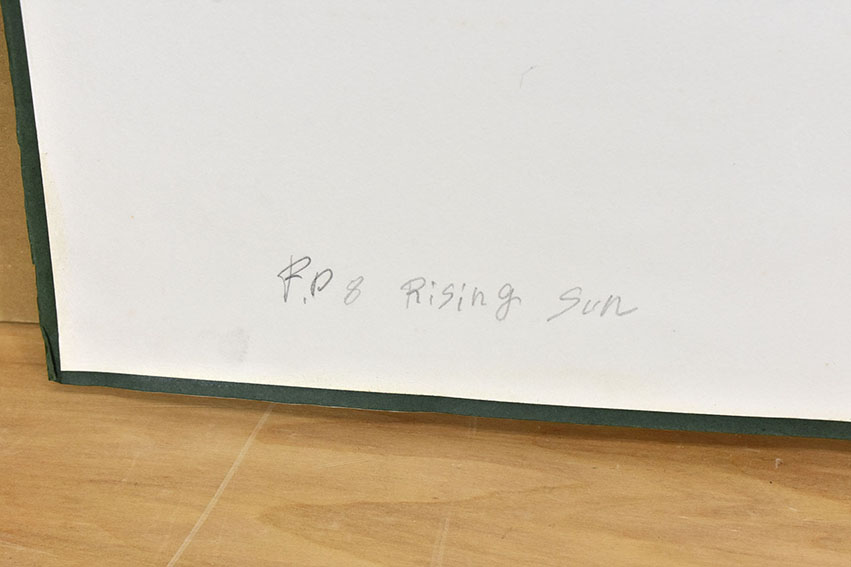 P.P 8 Rising Sun